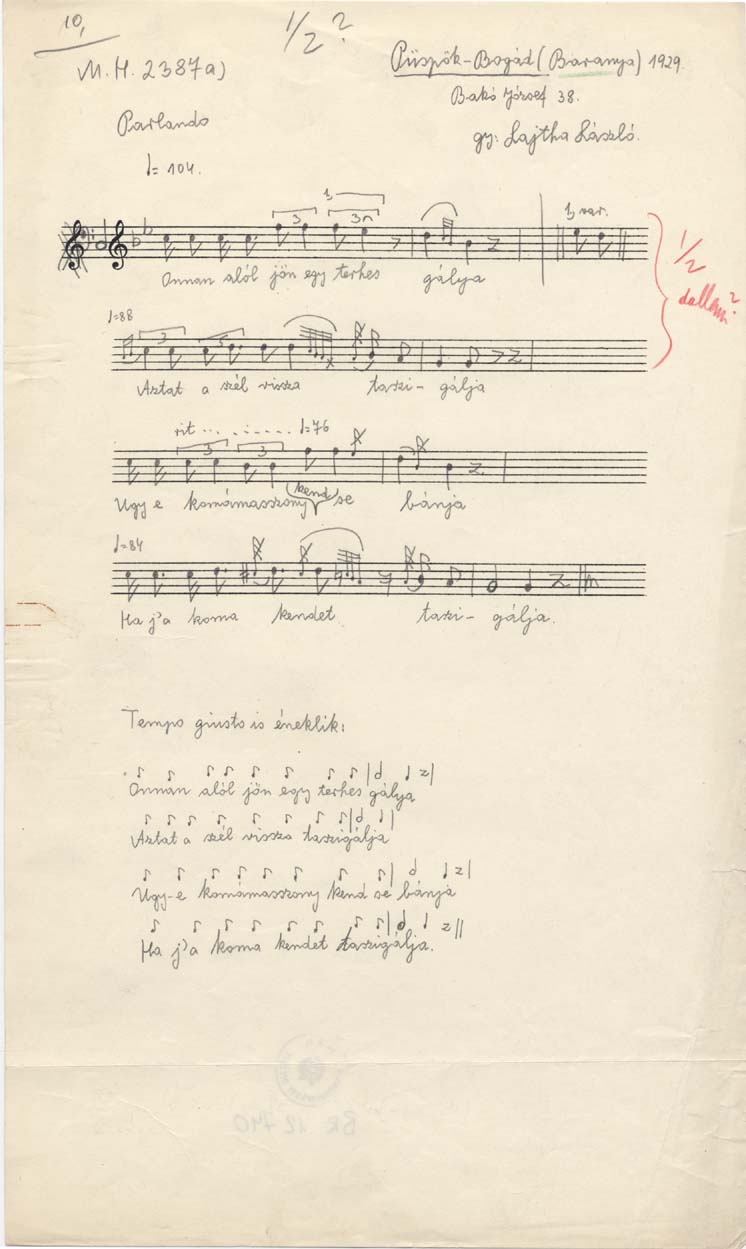 10,
1/2 ?
M.H. 2387a)
Püspök-Bogád (Baranya) 1929.
Bakó József 38.
gy: Lajtha László.
Parlando
♩= 104.
1,
3 3
1, var.
Onnan alól jön egy terhes gálya
1/2
dallam?
♩=88
3 3
Aztat a szél vissza taszi- gálja
rit ... ♩=76
3 3
Ugy e komámasszony kend se bánja
♩=84
Ha j'a koma kendet taszi- gálja.
Tempo giusto is éneklik:
Onnan alól jön egy terhes gálya
Aztat a szél vissza taszigálja
Ugy-e komámasszony kend se bánja
Ha j'a koma kendet taszigálja.
BR 12 710